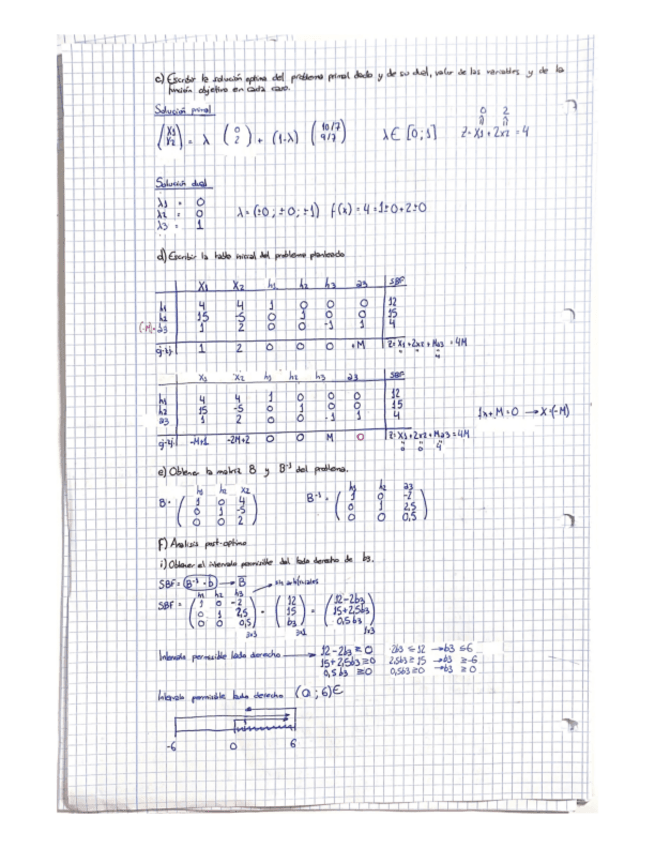 c) Escribir la solución optima del problema primal dado y de su dual, valor de las variables y de la
función objetivo en cada caso.
Solución primal
(x1 x2) = λ (0 2) + (1-λ) (10/7 9/7)   λ∈ [0;1]   Z= X1 + 2x2 = 4
0 2
Solución dual
λ1 = 0
λ2 = 0   λ = (±0; ±0; ±1)   f(x) = 4 = 1±0+2±0
λ3 = 1
d) Escribir la tabla inicial del problema planteado
X1 X2 h1 h2 h3 a3 SBF
h1 4 4 1 0 0 0 12
h2 15 -5 0 1 0 0 15
(-M) a3 1 2 0 0 -1 1 4
cj-zj 1 2 0 0 0 +M Z= X1+2x2+Ma3 = 4M
X1 X2 h1 h2 h3 a3 SBF
h1 4 4 1 0 0 0 12
h2 15 -5 0 1 0 0 15
a3 1 2 0 0 -1 1 4
1x+M=0 → X=(-M)
cj-zj -M+1 -2M+2 0 0 M 0 Z= X1+2x2+Ma3=4M
0 0 4
e) Obtener la matriz B y B⁻¹ del problema.
h1 h2 x2   h1 h2 a3
B= (1 0 4   B⁻¹ = (1 0 -2
0 1 -5   0 1 2,5
0 0 2)   0 0 0,5)
F) Analisis post-optimo
i) Obtener el intervalo permisible del lado derecho de b3.
SBF= B⁻¹ · b → B
SBF = (1 0 -2 · (12 = (12-2b3
h1 h2 h3
0 1 2,5   15   15+2,5b3
0 0 0,5)   b3)   0,5b3)
3x3   3x1   1x3
Intervalo permisible lado derecho → 12-2b3 ≥ 0   2b3 ≤ 12 → b3 ≤ 6
15+2,5b3 ≥ 0   2,5b3 ≥ 15 → b3 ≥ -6
0,5b3 ≥ 0   0,5b3 ≥ 0 → b3 ≥ 0
Intervalo permisible lado derecho (0;6)∈
-6 0 6